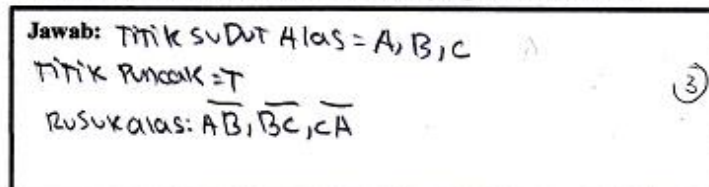 Jawab: Titik suDut Alas = A, B, C
Titik Puncak = T
3
Rusuk alas: A̅B̅, B̅C̅, C̅A̅